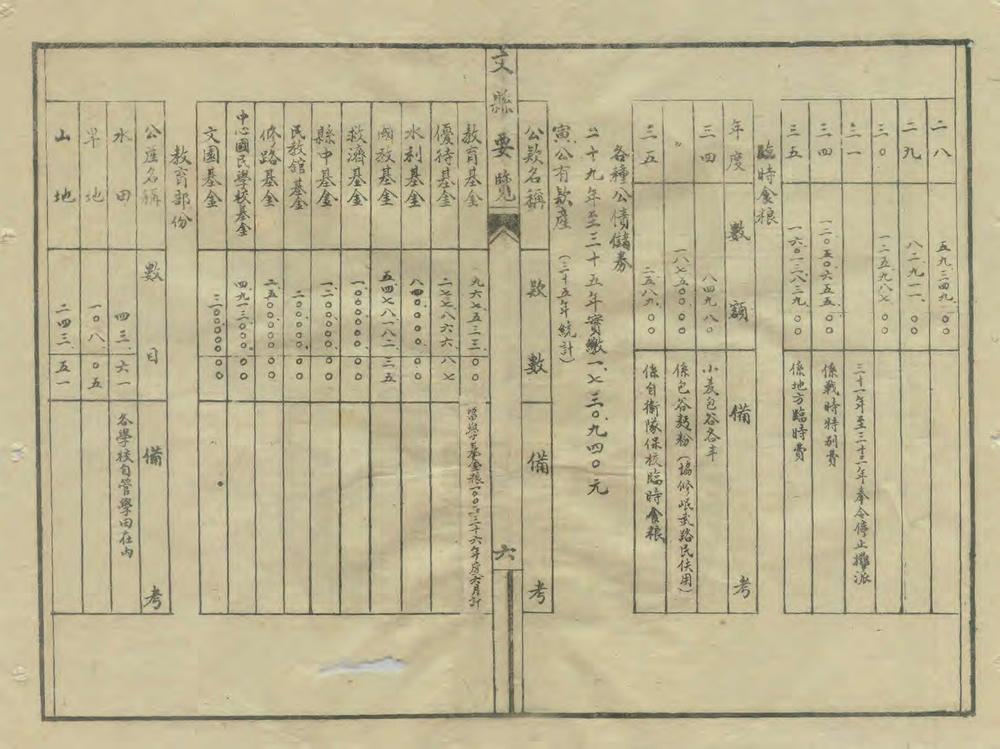 二八 五九三四九 〇〇
二九 八二九一一 〇〇
三〇 一二五九八七 〇〇
三一 三十一年至三十三年奉令停止攤派
三四 一二〇五〇六五五 〇〇 係戰時特別費
三五 一六〇一三八三九 〇〇 係地方臨時費
臨時食粮
年度 數額 備考
三四 八四九 八〇 小麦包谷各半
〃 一八七五〇〇 〇〇 係包谷麵粉（協修岷武路民伕用）
三五 二五八九 〇〇 係自衛隊保校臨時食粮
各種公債儲券
二十九年至三十五年實繳一、七三〇、九四〇元
寅、公有款產（三十五年統計）
公款名稱 款數 備考
文縣要覽
六
教育基金 九六七五三三 〇〇 留學基金粮一〇〇二三十六年度六月計
優待基金 二七七八六六 八七
水利基金 八四〇〇〇 〇〇
國教基金 五四七八一八二 三五
救濟基金 一〇〇〇〇〇〇 〇〇
縣中基金 一二〇〇〇〇〇 〇〇
民教舘基金 二〇〇〇〇〇 〇〇
修路基金 二五〇〇〇〇 〇〇
中心國民學校基金 四九一三〇〇〇 〇〇
文園基金 三〇〇〇〇〇 〇〇
教育部份
公產名稱 數目 備考
水田 四三 六一 各學校自管學田在內
旱地 一〇八 〇五
山地 二四三 五一